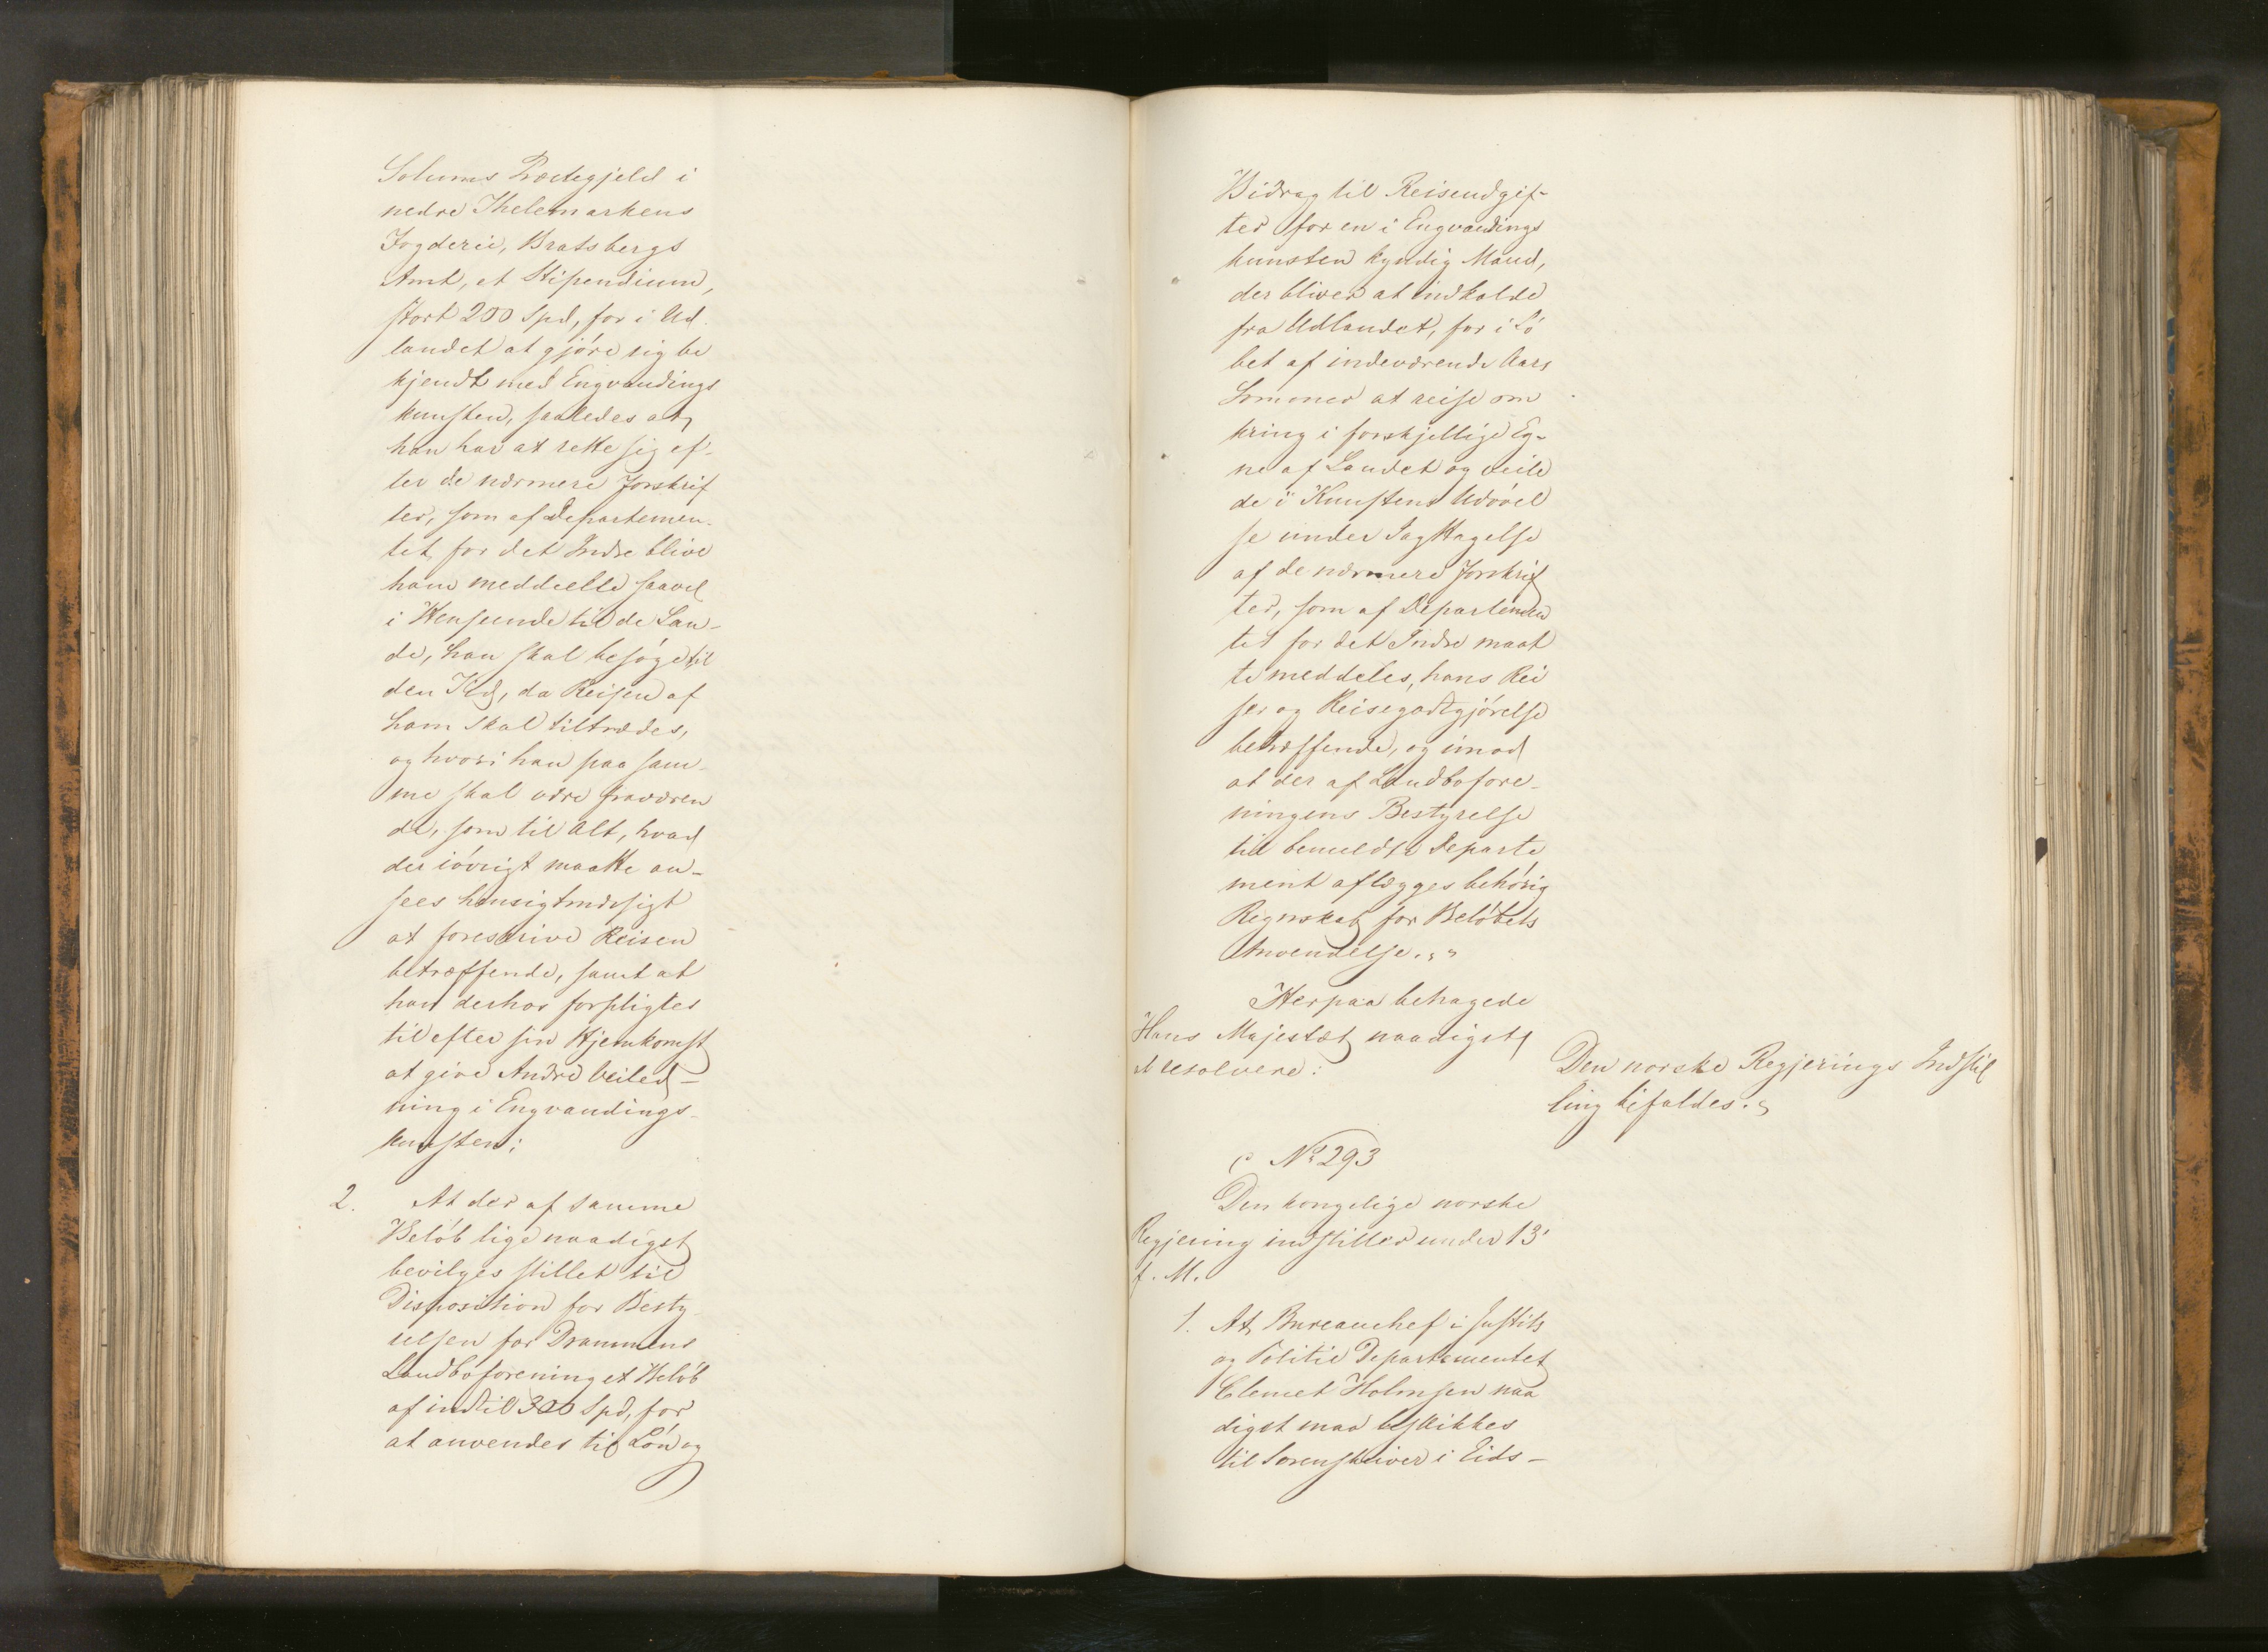 Solums Præstegjeld i
nedre Thelemarkens
Fogderie, Bratsbergs
Amt, et Stipendium,
stort 200 Spd, for i Ud
landet at gjöre sig be
kjendt med Engvandings
kunsten, saaledes at
han har at rette sig ef-
ter de nærmere Forskrif
ter, som af Departemen-
tet for det Indre blive
ham meddeelte saavel
i Henseende til de Lan-
de, han skal besöge, til
den Tid, da Reisen af
ham skal tiltrædes,
og hvori han paa sam-
me skal være fraværen
de, som til Alt, hvad
der iövrigt maatte an-
sees hensigtmæssigt
at foreskrive Reisen
betræffende, samt at
han derhos forpligtes
til efter sin Hjemkomst
at give Andre Veiled-
ning i Engvandings-
kunsten;
2. At der af samme
Belöb lige naadigst
bevilges stillet til
Disposition for Besty
relsen for Drammens
Landboforening et Belöb
af indtil 300 Spd, for
at anvendes til Lön og
Bidrag til Reiseudgif-
ter for en i Engvandings
kunsten kyndig Mand,
der bliver at indkalde
fra Udlandet, for i Lö
bet af indeværende Aars
Sommer at reise om
kring i forskjellige Eg-
ne af Landet og veile
de i Kunstens Udövel
se under Iagttagelse
af de nærmere Forskrif
ter, som af Departemen
tet for det Indre maat
te meddeles, hans Rei
ser og Reisegodtgjörelse
betræffende, og imod
at der af Landbofore-
ningens Bestyrelse
til bemeldte Departe
ment aflægges behörig
Regnskab for Belöbets
Anvendelse.
Herpaa behagede
Hans Majestæt naadigst
at resolvere:
Den norske Regjerings Indstil
ling bifaldes.
No 293
Den kongelige norske
Regjering indstiller under 13'
f. M.
1. At Bureauchef i Justits
og Politie Departementet
Clemet Holmsen naa
digst maa beskikkes
til Sorenskriver i Eids-